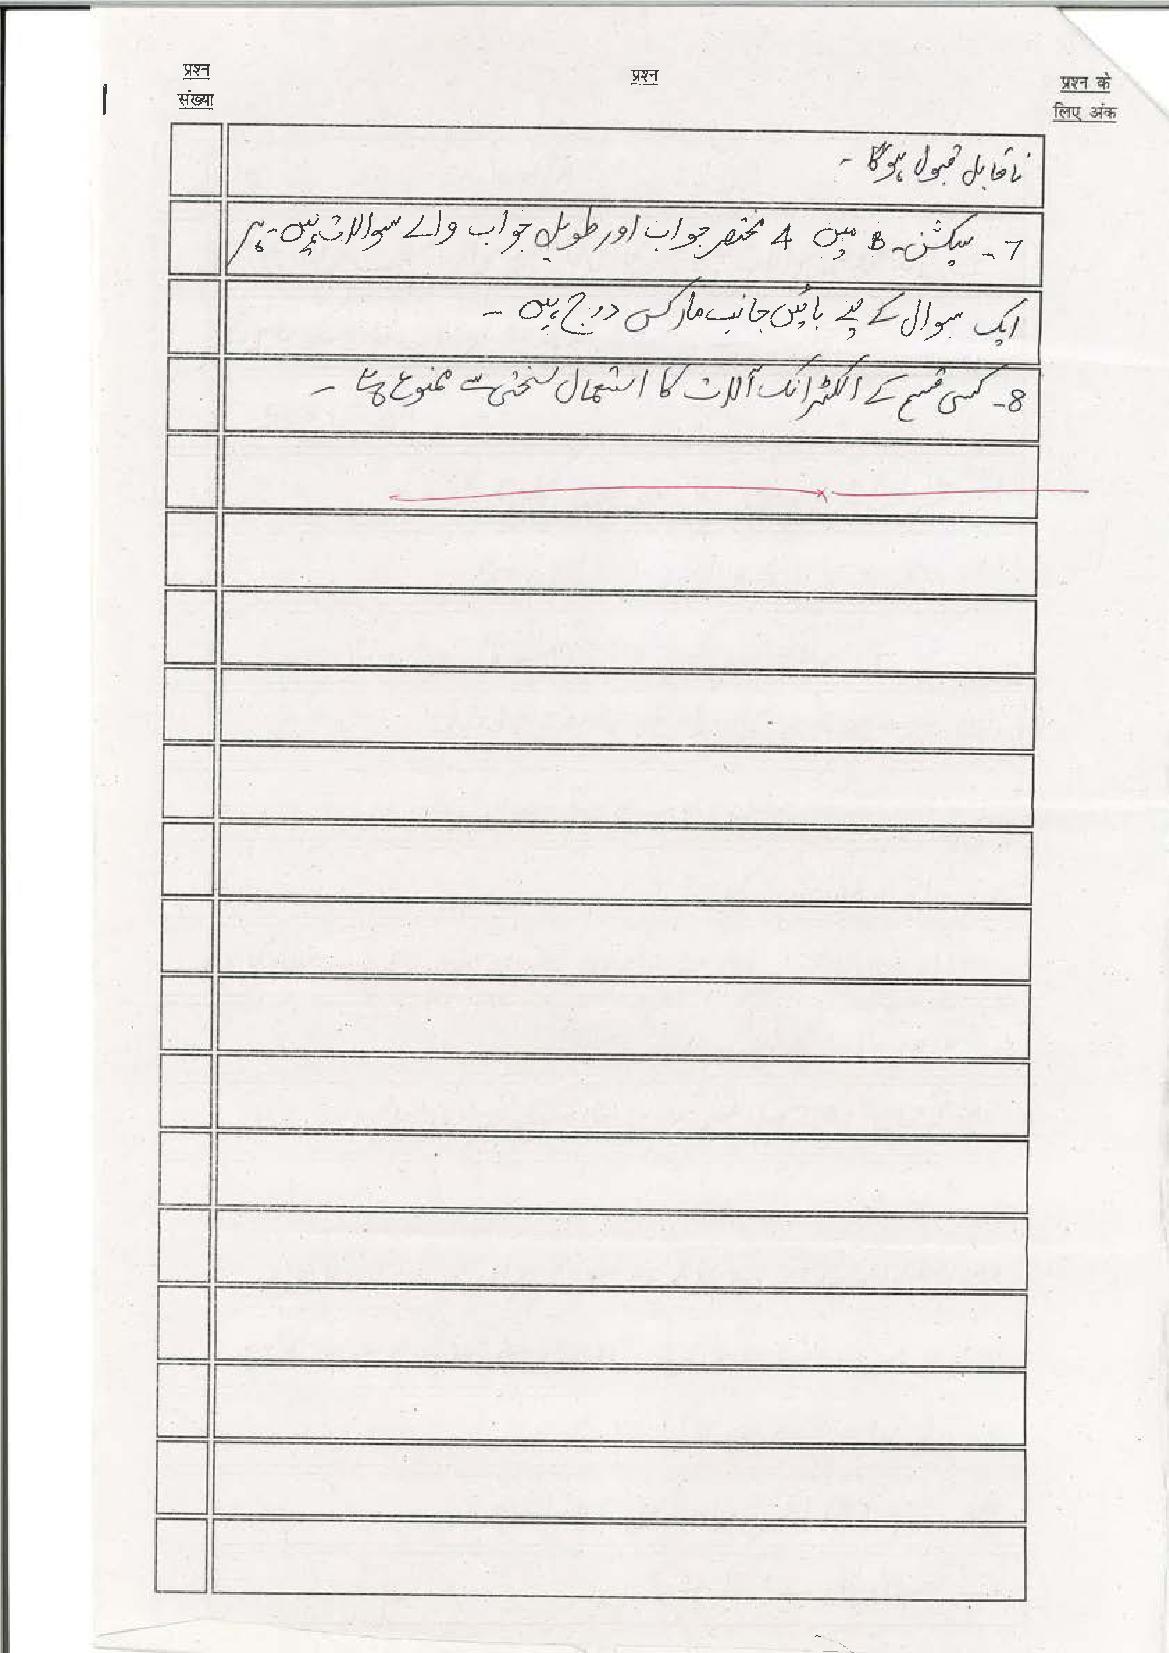 प्रश्न
संख्या
प्रश्न
प्रश्न के
लिए अंक
ناقابل قبول ہوگا -
7- سیکشن۔ B میں 4 مختصر جواب اور طویل جواب والے سوالات ہیں - ہر
ایک سوال کے لیے بائیں جانب مارکس درج ہیں -
8- کسی قسم کے الکٹرانک آلات کا استعمال سختی سے ممنوع ہے -